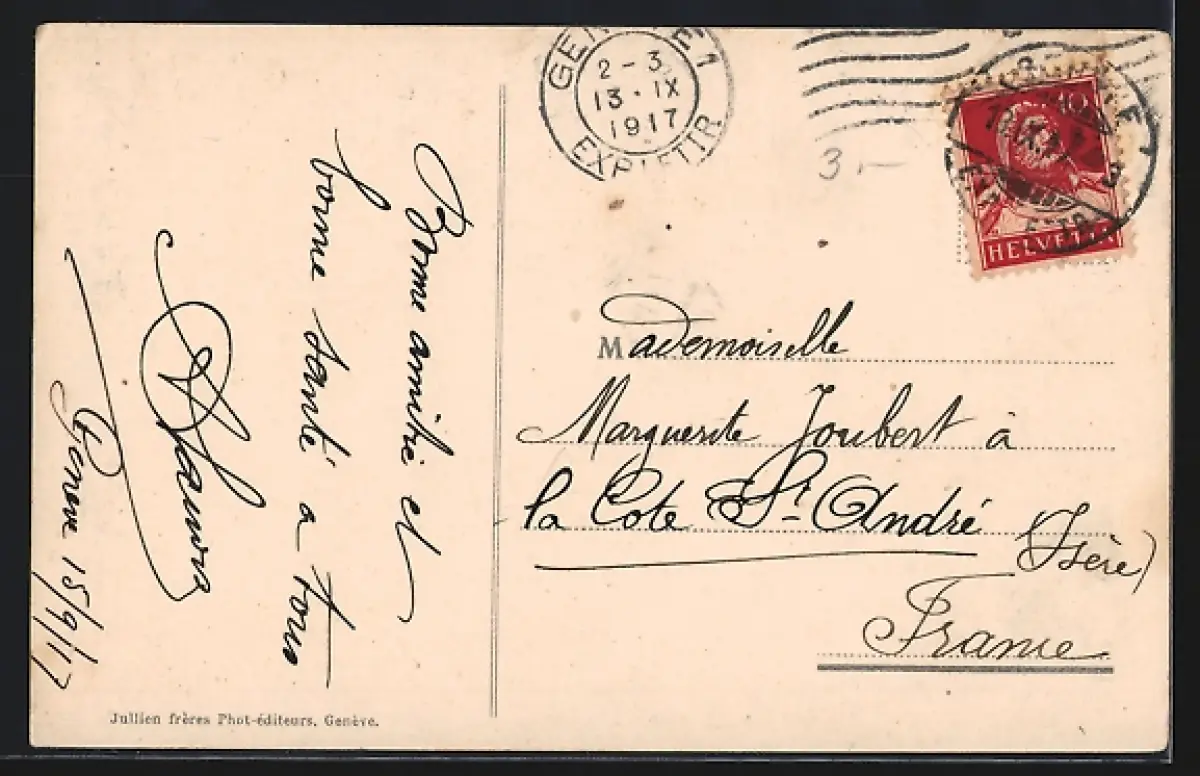 Bonne amitié et
bonne santé à tous
Genève 15/9/17
Jullien frères Phot-éditeurs, Genève.
GENÈVE 1
2-3
13·IX
1917
EXP. LETTR
3.-
10
HELVETIA
Mademoiselle
Marguerite Joubert à
la Cote St. André
(Isère)
France